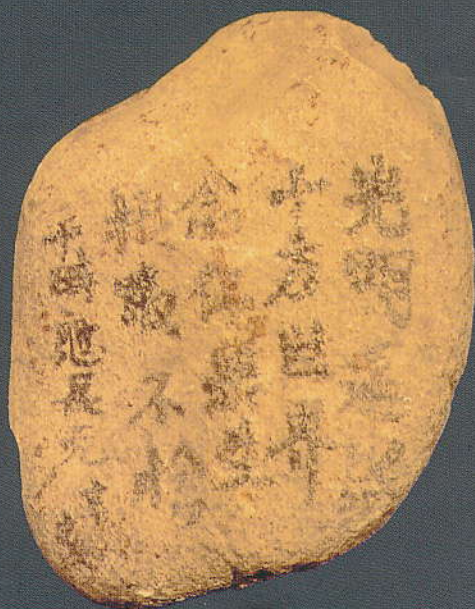 光明遍照
十方世界
念仏衆生
摂取不捨
平岡